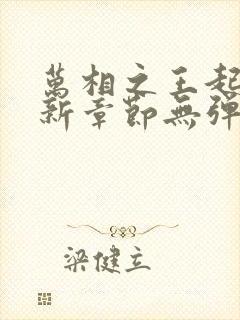 萬相之王起
新章節無彈
梁健立